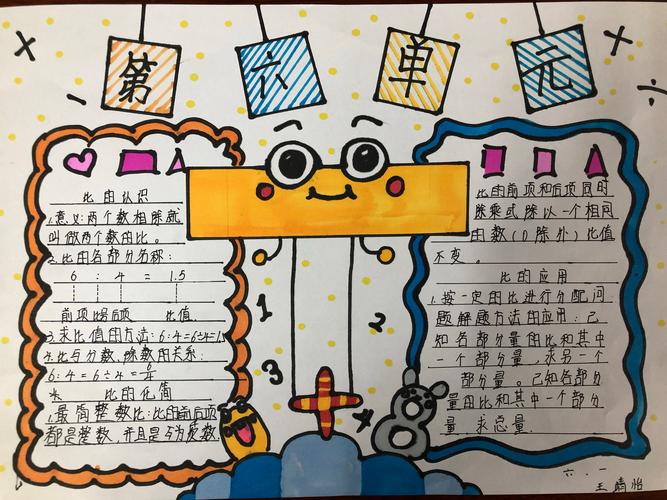 第六单元
比的认识
1.意义:两个数相除就
叫做两个数的比。
2.比的各部分名称:
6 : 4 = 1.5
前项比号后项 比值
3.求比值的方法:6:4=6÷4=1.5
4.比与分数、除数的关系:
6:4=6÷4=6/4
* 比的化简
1.最简整数比:比的前后项
都是整数,并且是互为质数.
比的前项和后项同时
除乘或除以一个相同
的数(0除外)比值
不变。
比的应用
1.按一定的比进行分配问
题解题方法的应用:已
知各部分量的比和其中
一个部分量,求另一个
部分量。已知各部分
量的比和其中一个部分
量,求总量.
1
2
3
4
六.一
王晴怡